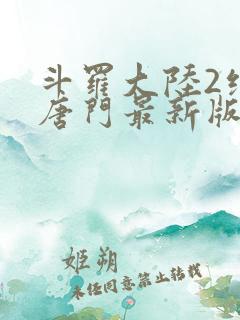 斗羅大陸2
唐門最新版
姬朔
未任同意禁止转载